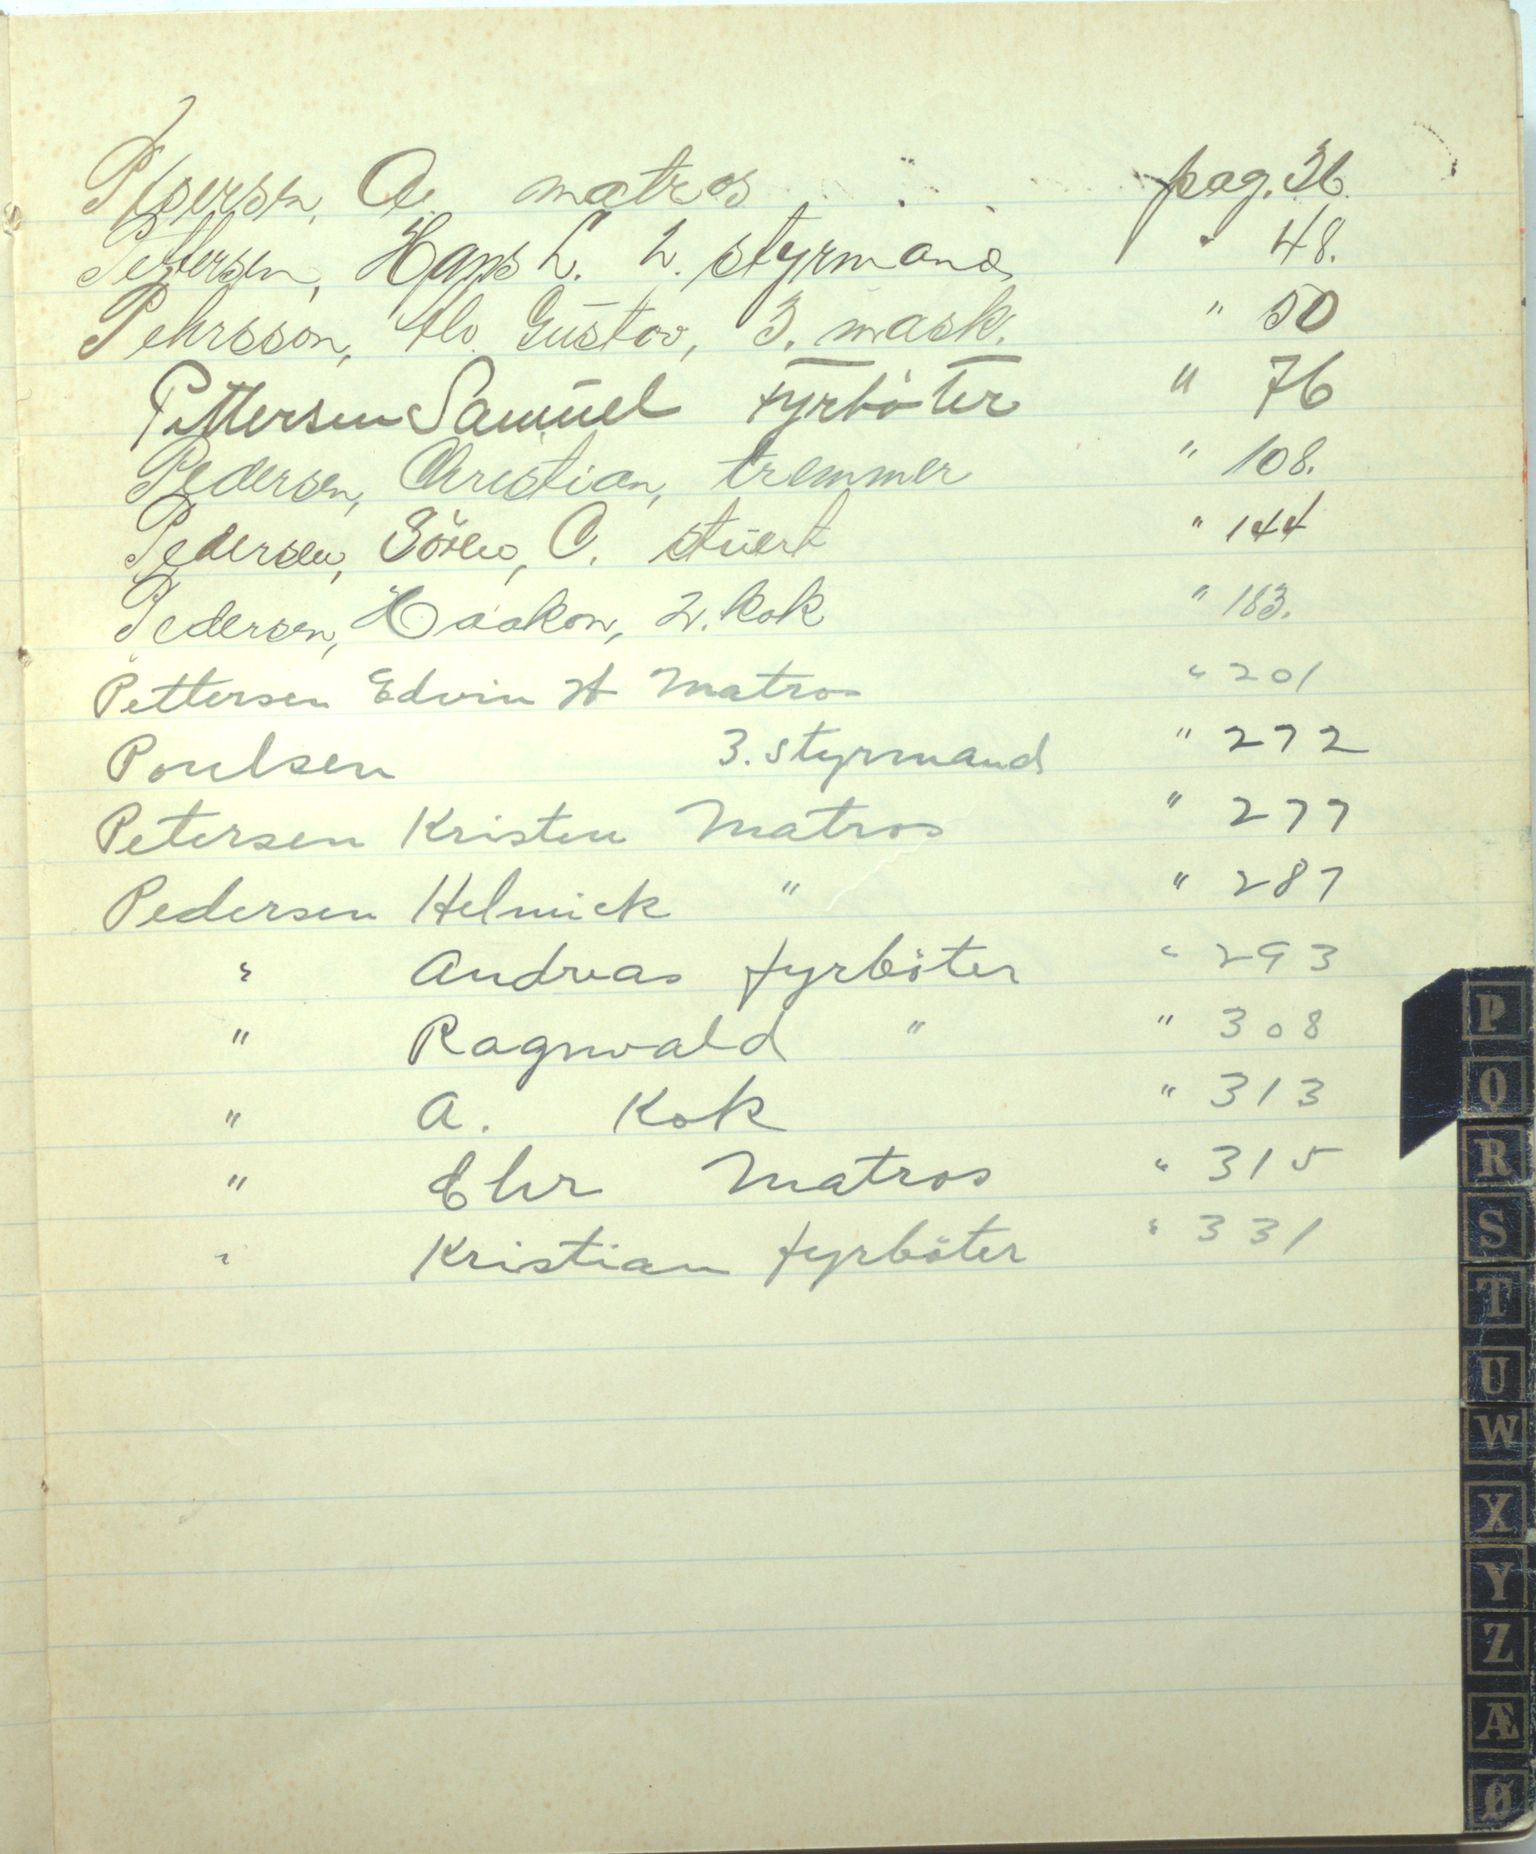 A. matros " pag. 36.
Pettersen, Hans L. 2. styrmand " 48.
Pehrsson, Gustav, 3. mask. " 50
Pettersen Samuel fyrböter " 76
Pedersen, Christian, tremmer " 108.
Pedersen, Sören, C. stuert " 144
Pedersen, Haakon, 2. kok " 183.
Pettersen Edvin H Matros " 201
Poulsen 3. styrmand " 272
Petersen Kristen Matros " 277
Pedersen Helmick " " 287
" Andreas fyrböter " 293
" Ragnvald " " 308
" A. Kok " 313
" Ehr Matros " 315
" Kristian fyrböter " 331
P
Q
R
S
T
U
W
X
Y
Z
Æ
Ø